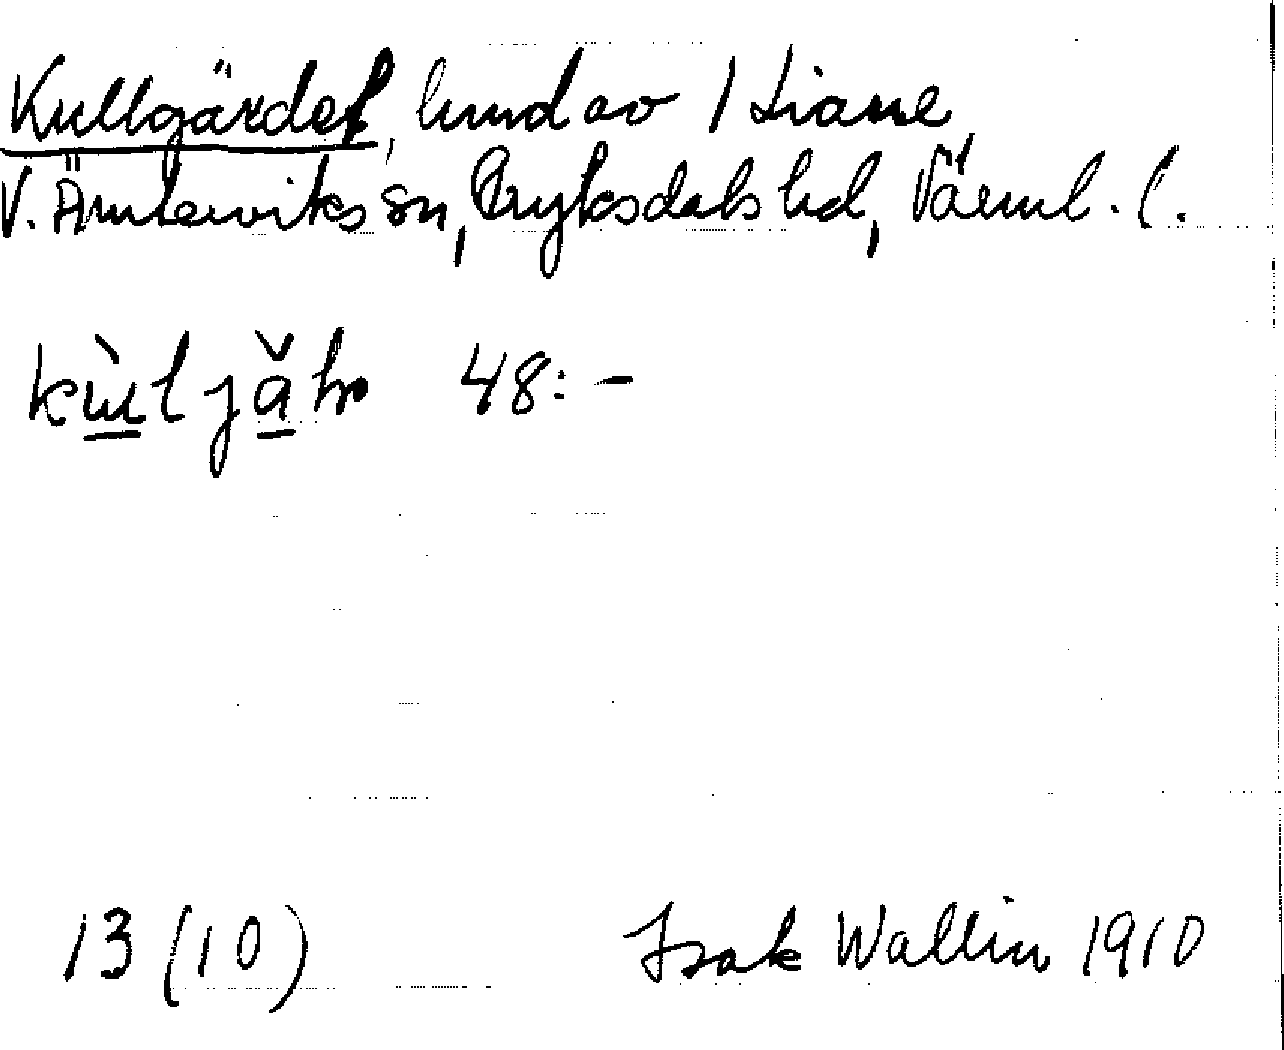 Kullgärdet, lund av 1 Liane,
V. Ämterviks sn, Fryksdals hd, Värml. l.
48:-
13 (10) Isak Wallin 1910